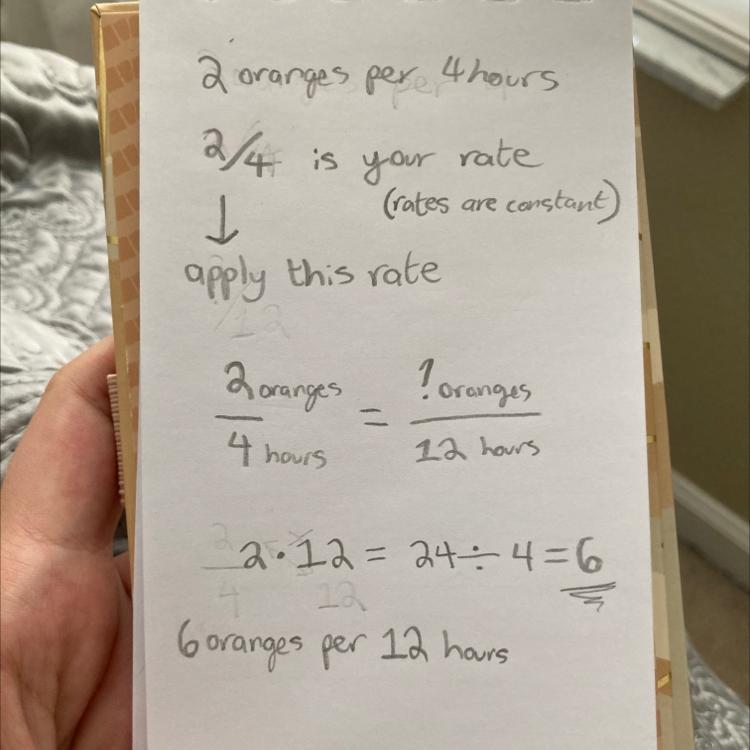 2 oranges per 4 hours
2/4 is your rate
(rates are constant)
↓
apply this rate
2 oranges / 4 hours = ? oranges / 12 hours
2 · 12 = 24 ÷ 4 = 6
6 oranges per 12 hours